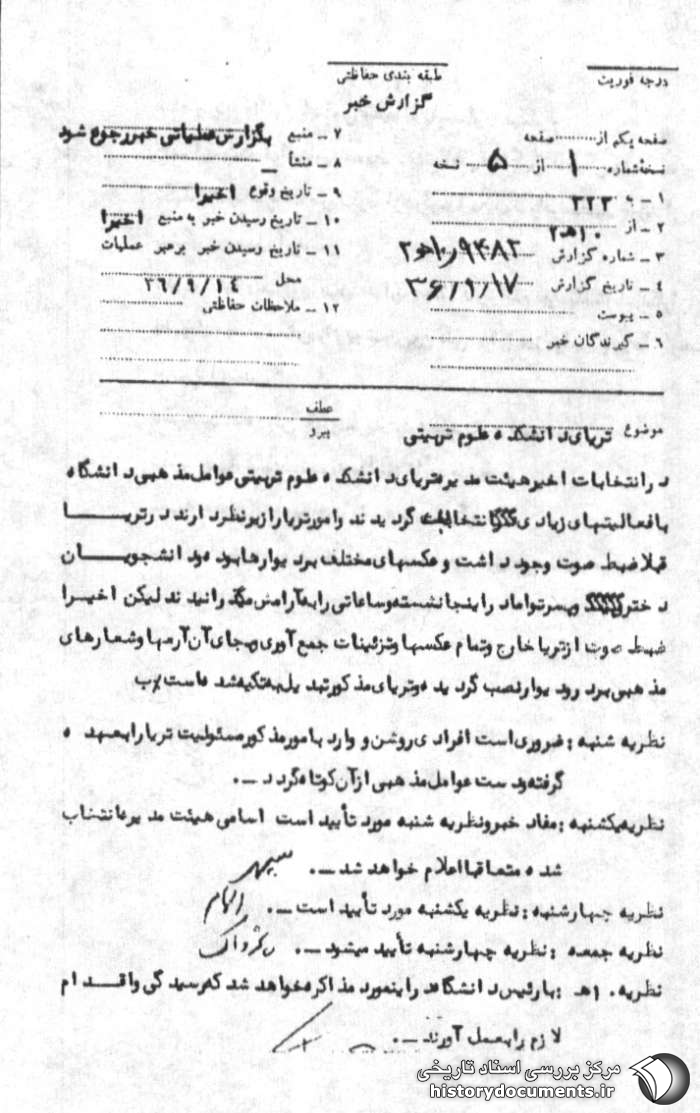 طبقه بندی حفاظتی
درجه فوریت
گزارش خبر
صفحه یکم از صفحه
نسخه شماره ۱ از ۵ نسخه
۱ ـ به ۳۲۲
۲ ـ از ۱۰هـ۲
۳ ـ شماره گزارش
۴ ـ تاریخ گزارش ۳۶/۹/۱۷
۵ ـ پیوست
۶ ـ گیرندگان خبر
۷ ـ منبع بگزارش عملیاتی خبر رجوع شود
۸ ـ منشأ ـ
۹ ـ تاریخ وقوع اخیرا
۱۰ ـ تاریخ رسیدن خبر به منبع اخیرا
۱۱ ـ تاریخ رسیدن خبر برهبر عملیات
محل ۳۶/۹/۱۴
۱۲ ـ ملاحظات حفاظتی
موضوع تریای دانشکده علوم تربیتی
عطف
پیرو
در انتخابات اخیر هیئت مدیره تریای دانشکده علوم تربیتی عوامل مذهبی دانشگاه
با فعالیتهای زیادی انتخاب گردیدند و امور تریا را زیر نظر دارند در تریا
قبلا ضبط صوت وجود داشت و عکسهای مختلف بر دیوارها بود و دانشجویان
دختر و پسر تواما در اینجا نشسته و ساعاتی را به آرامش میگذرانیدند لیکن اخیرا
ضبط صوت از تریا خارج و تمام عکسها و تزئینات جمع آوری و بجای آن آرمها و شعارهای
مذهبی بر در و دیوار نصب گردیده و تریای مذکور تبدیل به تکیه شده است
نظریه شنبه : ضروری است افرادی روشن و وارد بامور مذکور مسئولیت تریا را بعهده
گرفته و دست عوامل مذهبی از آن کوتاه گردد ـ.
نظریه یکشنبه : مفاد خبر و نظریه شنبه مورد تأیید است اسامی هیئت مدیره انتخاب
شده متعاقبا اعلام خواهد شد ـ. سپهر
نظریه چهارشنبه : نظریه یکشنبه مورد تأیید است ـ. الهام
نظریه جمعه : نظریه چهارشنبه تأیید میشود ـ.
نظریه ۱۰هـ : با رئیس دانشگاه در اینمورد مذاکره خواهد شد که رسیدگی و اقدام
لازم را بعمل آورند ـ.
مرکز بررسی اسناد تاریخی
historydocuments.ir